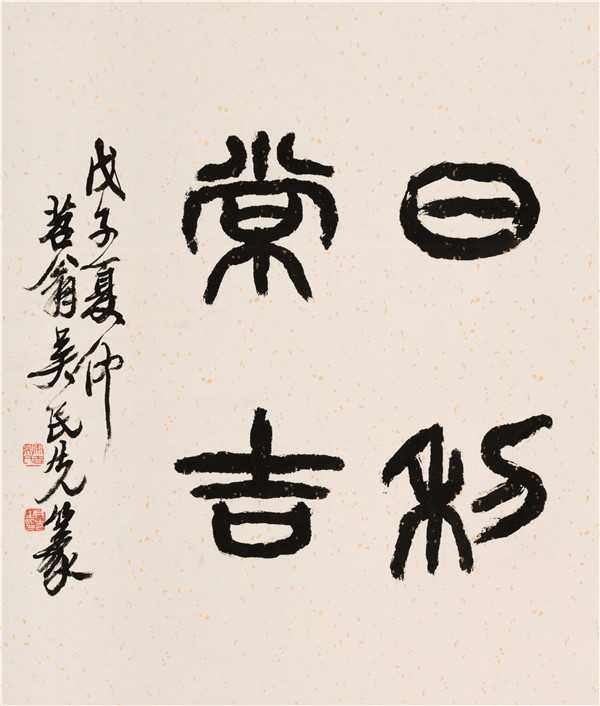 日利
常吉
戊子夏仲
苕翁吴民先篆